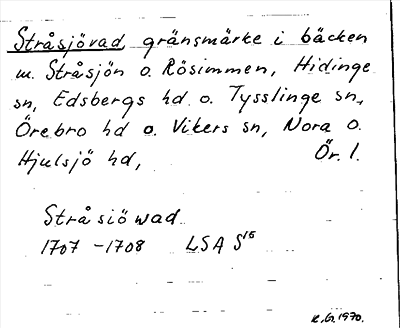 Stråsjövad, gränsmärke i bäcken
m. Stråsjön o. Rösimmen, Hidinge
sn, Edsbergs hd o. Tysslinge sn,
Örebro hd o. Vikers sn, Nora o.
Hjulsjö hd, Ör. l.
Stråsiöwad
1707–1708 LSA S15
R. G. 1970.